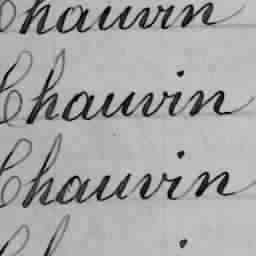 Chauvin
Chauvin
Chauvin